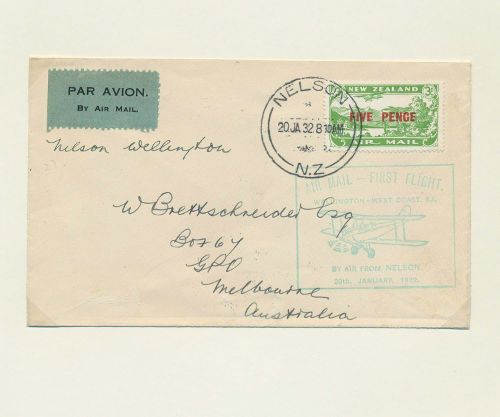 PAR AVION.
BY AIR MAIL.
NELSON
20 JA 32 8 30AM
N.Z
NEW ZEALAND
3D
FIVE PENCE
AIR MAIL
Nelson Wellington
AIR MAIL – FIRST FLIGHT.
WELLINGTON – WEST COAST, N.Z.
BY AIR FROM NELSON.
20th. JANUARY, 1932.
W Brettschneider Esq
Box 67
GPO
Melbourne
Australia